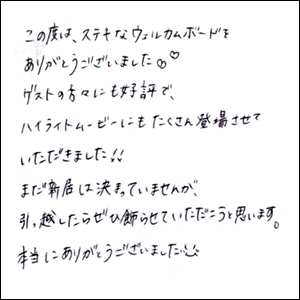 この度は、ステキなウェルカムボードを
ありがとうございました♡♡
ゲストの方々にも好評で、
ハイライトムービーにもたくさん登場させて
いただきました!!
まだ新居は決まっていませんが、
引っ越したらぜひ飾らせていただこうと思います。
本当にありがとうございました